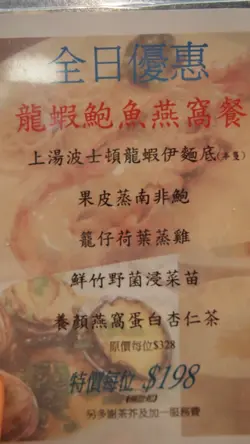 全日優惠
龍蝦鮑魚燕窩餐
上湯波士頓龍蝦伊麵底(半隻)
果皮蒸南非鮑
籠仔荷葉蒸雞
鮮竹野菌浸菜苗
養顏燕窩蛋白杏仁茶
原價每位$328
特價每位 $198
另多謝茶芥及加一服務費